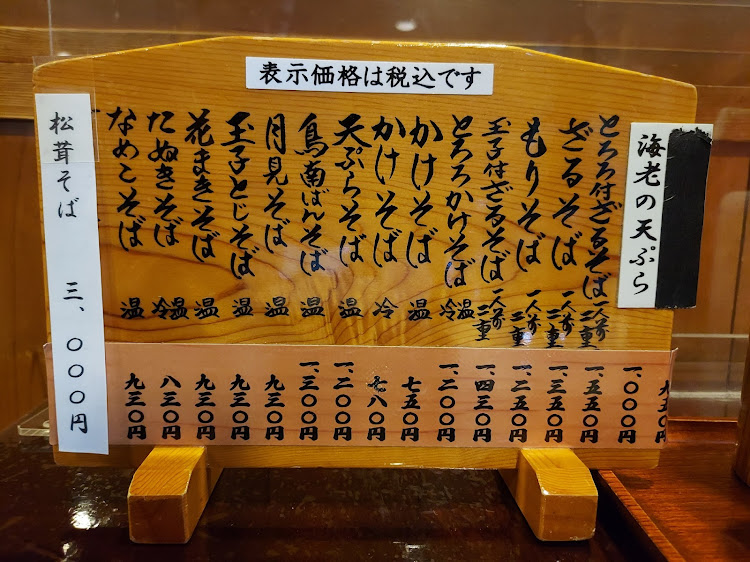 表示価格は税込です
海老の天ぷら
とろろ付ざるそば 一人前二重
ざるそば 一人前二重
もりそば 一人前二重
玉子付ざるそば 一人前二重
とろろかけそば 温冷
かけそば 温
かけそば 冷
天ぷらそば 温
鳥南ばんそば 温
月見そば 温
玉子とじそば 温
花まきそば 温
たぬきそば 温冷
なめこそば 温
九五〇円
一、〇〇〇円
一、五五〇円
一、三五〇円
一、二五〇円
一、四三〇円
一、二〇〇円
七五〇円
七八〇円
一、二〇〇円
一、三〇〇円
九三〇円
九三〇円
九三〇円
八三〇円
九三〇円
松茸そば 三、〇〇〇円